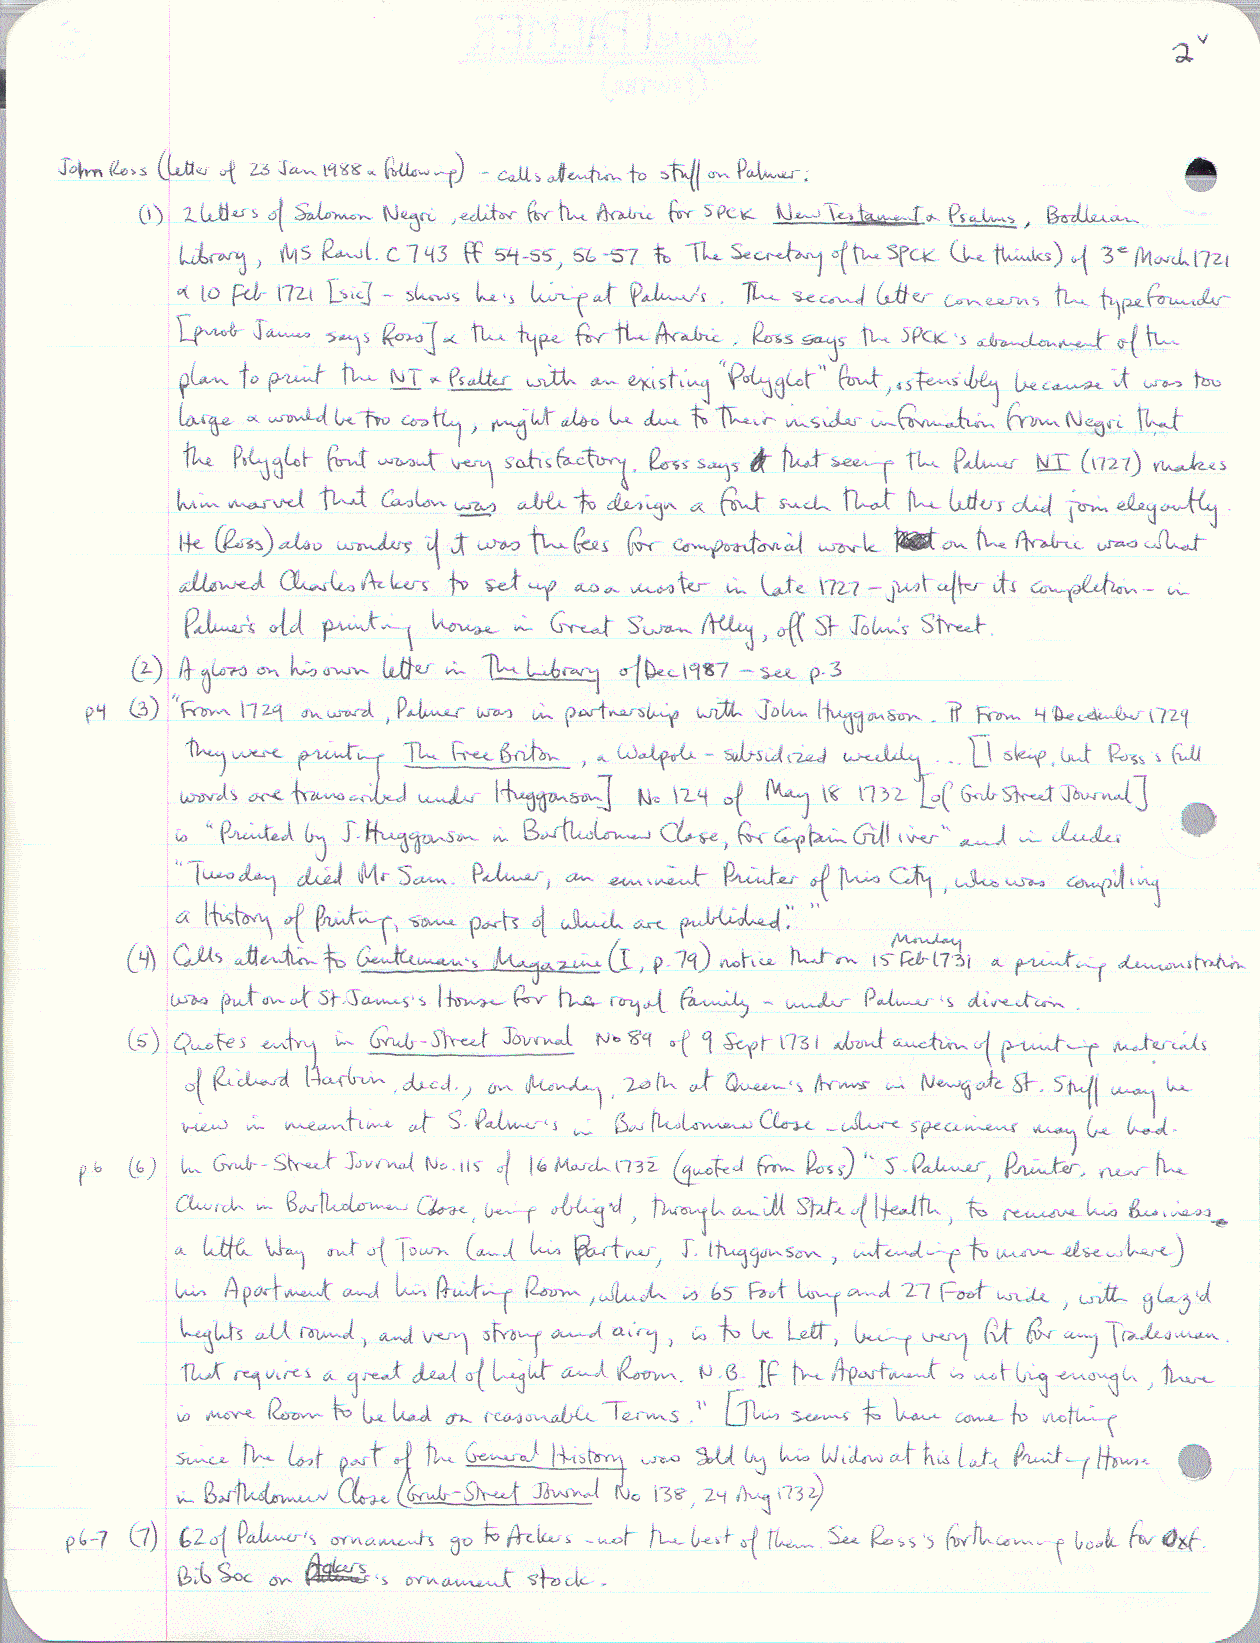 2v
John Ross (letter of 23 Jan 1988 & following) - calls attention to stuff on Palmer:
(1) 2 letters of Salomon Negri, editor for the Arabic for SPCK New Testament & Psalms, Bodleian
Library, MS Rawl. C 743 ff 54-55, 56-57 to The Secretary of the SPCK (he thinks) of 3e March 1721
& 10 Feb 1721 [sic] - shows he's living at Palmer's. The second letter concerns the typefounder
[prob James says Ross] & the type for the Arabic. Ross says the SPCK's abandonment of the
plan to print the NT & Psalter with an existing "Polyglot" font, ostensibly because it was too
large & would be too costly, might also be due to their insider information from Negri that
the Polyglot font wasnt very satisfactory. Ross says that seeing the Palmer NT (1727) makes
him marvel that Caslon was able to design a font such that the letters did join elegantly.
He (Ross) also wonders if it was the fees for compositorial work on the Arabic was what
allowed Charles Ackers to set up as a master in late 1727 - just after its completion - in
Palmer's old printing house in Great Swan Alley, off St John's Street.
(2) A gloss on his own letter in The Library of Dec 1987 - see p. 3
p4 (3) "From 1729 onward, Palmer was in partnership with John Huggonson. ¶ From 4 December 1729
they were printing The Free Briton, a Walpole-subsidized weekly ... [I skip, but Ross's full
words are transcribed under Huggonson] No 124 of May 18 1732 [of Grub Street Journal]
is "Printed by J. Huggonson in Bartholomew Close, for Captain Gulliver" and includes
"Tuesday died Mr Sam. Palmer, an eminent Printer of this City, who was compiling
a History of Printing, some parts of which are published." "
(4) Calls attention to Gentleman's Magazine (I, p. 79) notice that on Monday 15 Feb 1731 a printing demonstration
was put on at St. James's House for the royal family - under Palmer's direction.
(5) Quotes entry in Grub-Street Journal No 89 of 9 Sept 1731 about auction of printing materials
of Richard Harbin, decd., on Monday, 20th at Queen's Arms in Newgate St. Stuff may be
view in meantime at S. Palmer's in Bartholomew Close - where specimens may be had.
p6 (6) In Grub-Street Journal No. 115 of 16 March 1732 (quoted from Ross) "S. Palmer, Printer, near the
Church in Bartholomew Close, being oblig'd, through an ill State of Health, to remove his Business
a little Way out of Town (and his Partner, J. Huggonson, intending to move elsewhere)
his Apartment and his Printing Room, which is 65 Foot long and 27 Foot wide, with glaz'd
heghts all round, and very strong and airy, is to be Lett, being very fit for any Tradesman
that requires a great deal of Light and Room. N.B. If the Apartment is not big enough, there
is more Room to be had on reasonable Terms." [This seems to have come to nothing
since the last part of the General History was sold by his Widow at his late Printing House
in Bartholomew Close (Grub-Street Journal No 138, 24 Aug 1732)
p6-7 (7) 62 of Palmer's ornaments go to Ackers - not the best of them. See Ross's forthcoming book for Oxf.
Bib Soc on Ackers's ornament stock.